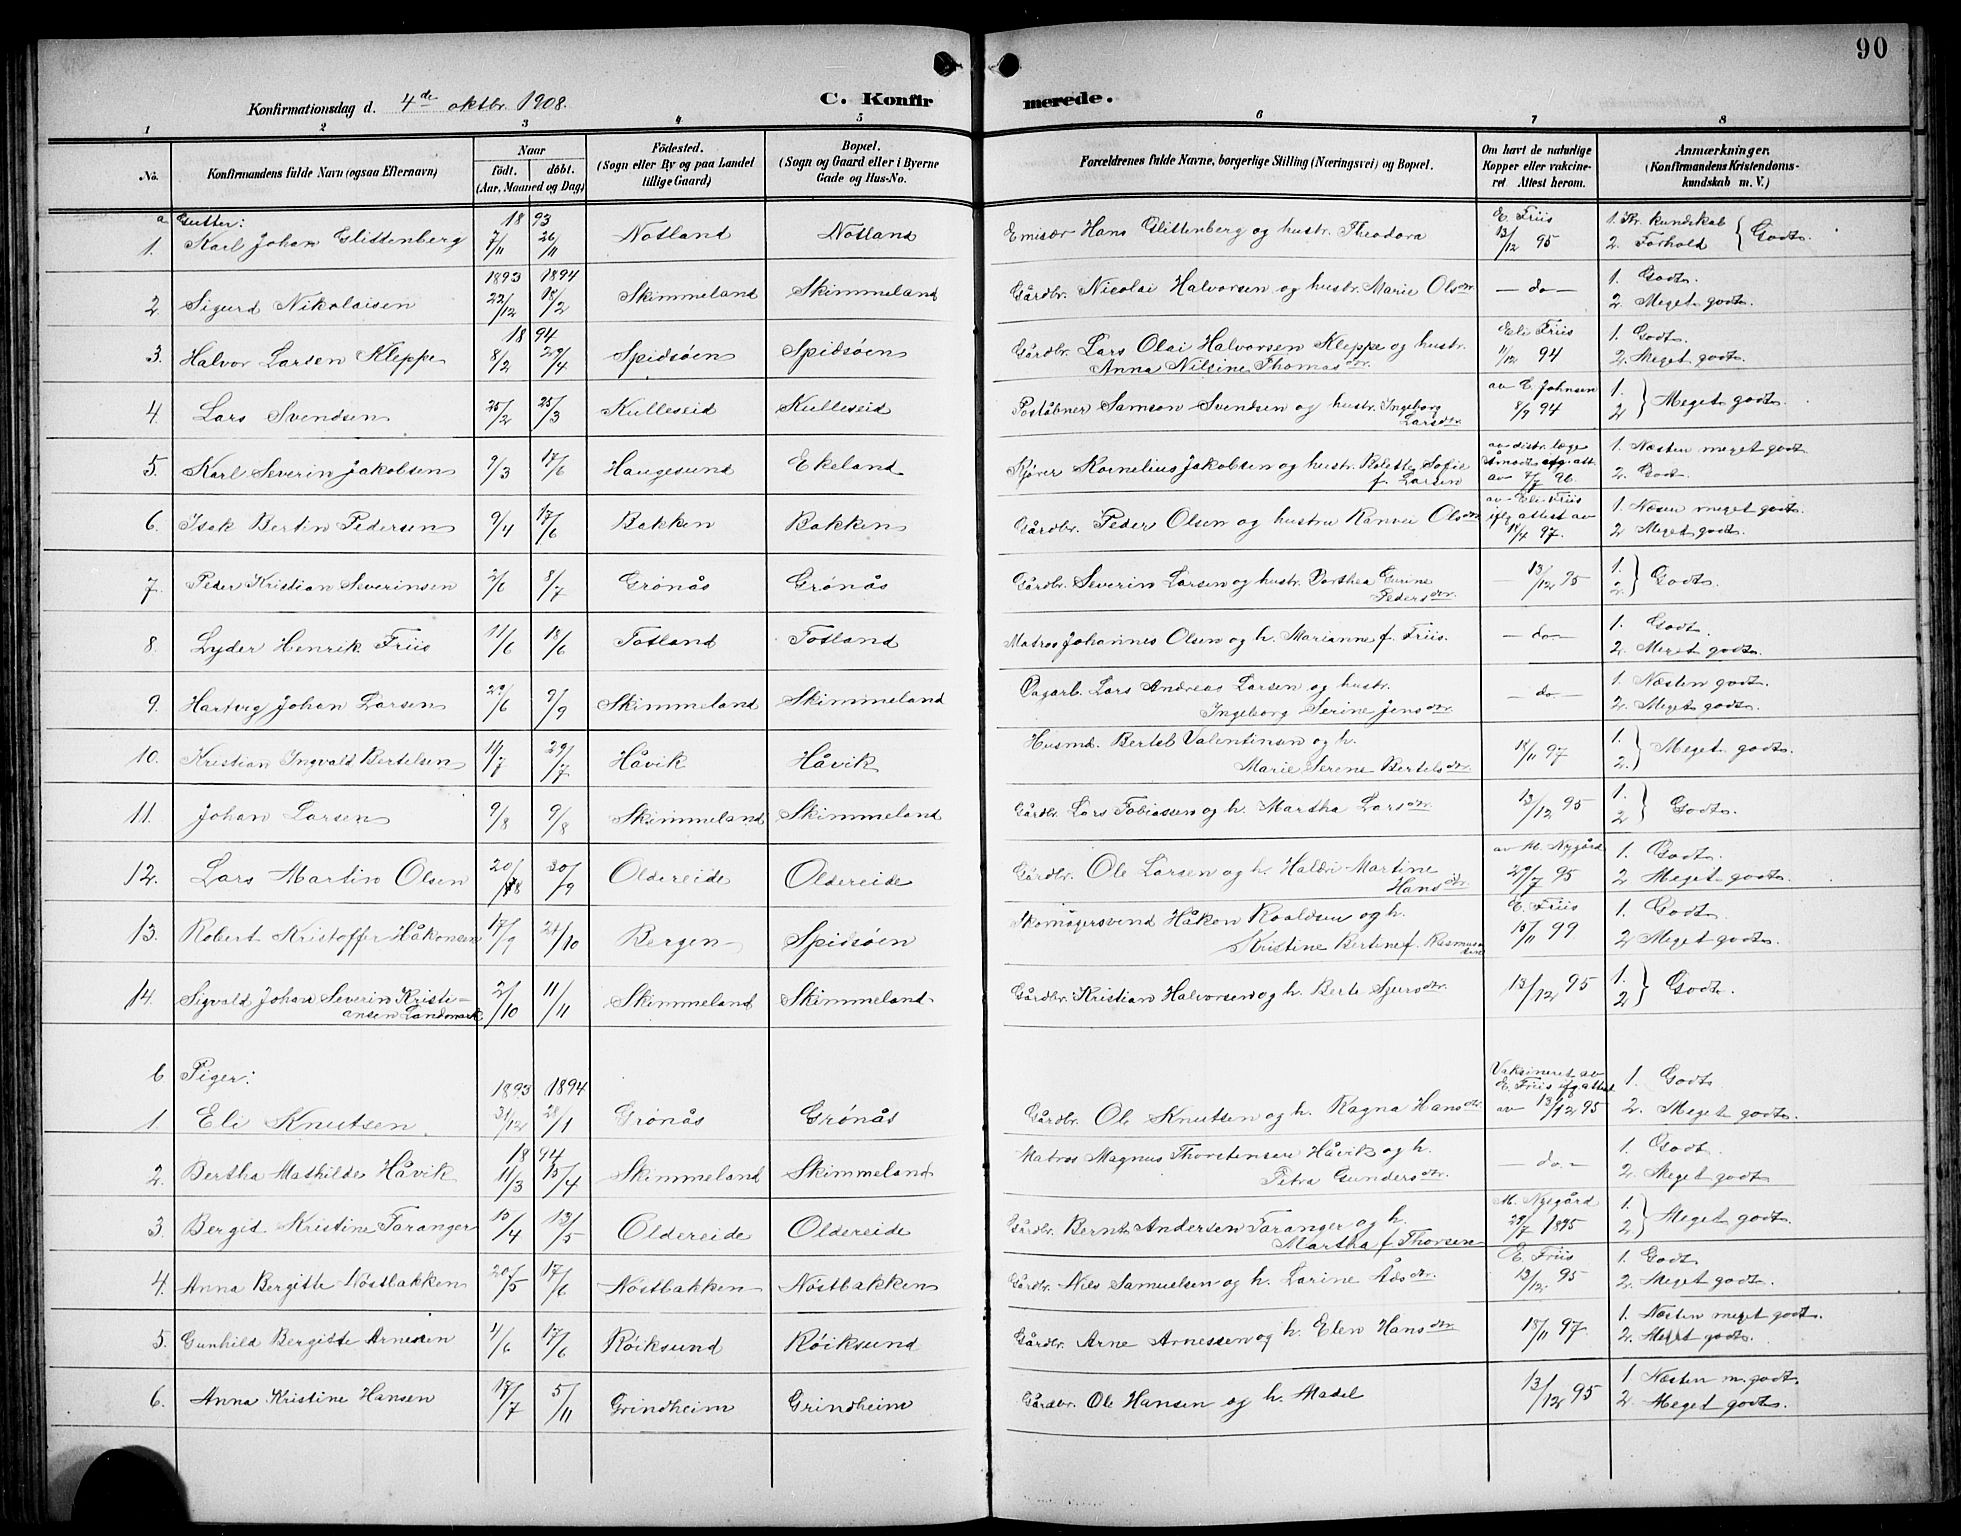 90
Konfirmationsdag d. 4de oktbr. 1908.
C. Konfirmerede.
1 2 3 4 5 6 7 8
No. Konfirmandens fulde Navn (ogsaa Efternavn) Naar født. døbt. (Aar, Maaned og Dag) Fødested. (Sogn eller By og paa Landet tillige Gaard) Bopæl. (Sogn og Gaard eller i Byerne Gade og Hus-No. Forældrenes fulde Navne, borgerlige Stilling (Næringsvei) og Bopæl. Om havt de naturlige Kopper eller vakcineret Attest herom. Anmærkninger. (Konfirmandens Kristendomskundskab m. V.)
a Gutter: 1893
1. Karl Johan Glittenberg 7/11 26/11 Notland Notland Emisær Hans Glittenberg og hustr. Theodora E. Friis 13/12 95 1. Kr. kundskab 2. Forhold } Godt.
1893 1894
2 Sigurd Nikolaisen 22/12 18/2 Skimmeland Skimmeland Gårdbr. Nicolai Halvorsen og hustr. Marie Olsdtr. — do — 1. Godt. 2. Meget godt.
1894
3. Halvor Larsen Kleppe 8/2 29/4 Spidsøen Spidsøen Gårdbr. Lars Olai Halvorsen Kleppe og hustr. Anna Nilsine Thomasdtr. Eli Friis 11/12 94 1. Godt. 2. Meget godt.
4. Lars Svendsen 25/2 25/3 Kulleseid Kulleseid Poståbner Samson Svendsen og hustr. Ingeborg Larsdtr. av E. Johnsen 8/9 94 1. 2 } Meget godt.
5. Karl Severin Jakobsen 9/3 17/6 Haugesund Ekeland Kornelius Jakobsen og hustr. Sofie f. Larsen av distr. læge av 7/7 96. 1. Næsten meget godt 2. God.
6. Isak Bertin Pedersen 9/4 17/6 Bakken Bakken Gårdbr. Peder Olsen og hustru Ranvei Olsdtr. av Eli Friis iflg attest av 18/4 97. 1. Næsen meget godt. 2. Meget godt.
7. Peder Kristian Severinsen 2/6 8/7 Grønås Grønås Gårdbr. Severin Larsen og hustr. Dorthea Gurine Pedersdtr. 13/12 95 1. 2. } Godt.
8. Lyder Henrik Friis 11/6 18/6 Totland Totland Matros Johannes Olsen og h. Marianne f. Friis. — do — 1. Godt. 2. Meget godt.
9. Hartvig Johan Larsen 29/6 9/9 Skimmeland Skimmeland Dagarb. Lars Andreas Larsen og hustr. Ingeborg Serine Jensdtr. — do — 1. Næsten godt. 2. Meget godt.
10. Kristian Ingvald Bertelsen 11/7 29/7 Håvik Håvik Husmd. Bertel Valentinsen og h. Marie Serene Bertelsdtr. 18/11 97 1. 2. } Meget godt.
11. Johan Larsen 9/8 9/8 Skimmeland Skimmeland Gårdbr. Lars Tobiassen og h. Martha Larsdtr. 13/12 95 1. 2 } Godt.
12. Lars Martin Olsen 20/8 30/9 Oldereide Oldereide Gårdbr. Ole Larsen og h. Haldri Martine Hansdtr. av M. Nygård 29/7 95 1. Godt. 2 Meget godt.
13. Robert Kristoffer Håkonsen 17/9 21/10 Bergen Spidsøen Skomagersvend Håkon Roaldsen og h. Kristine Bertine f. Rasmussen E. Friis 15/11 99 1. Godt. 2 Meget godt.
14. Sigvald Johan Severin Kristiansen Landmark 2/10 11/11 Skimmeland Skimmeland Gårdbr. Kristian Halvorsen og h. Berte Sjursdtr. 13/12 95 1. 2 } Godt.
b Piger: 1893 1894
1. Eli Knutsen 31/12 28/1 Grønås Grønås Gårdbr. Ole Knutsen og h. Ragna Hansdtr. Vaksineret av E. Friis ifg. attest av 13/12 95 1. Godt 2. Meget godt.
1894
2. Bertha Mathilde Håvik 11/3 15/4 Skimmeland Skimmeland Matros Magnus Thorstensen Håvik og h. Petra Gundersdtr. — do. — 1. Godt. 2. Meget godt
3 Bergid. Kristine Taranger 15/4 13/5 Oldereide Oldereide Gårdbr. Bernt Andersen Taranger og h. Martha f. Thorsen M. Nygård 29/7 1895 1. 2 } Meget godt.
4. Anna Bergitte Nøstbakken 20/5 17/6 Nøstbakken Nøstbakken Gårdbr. Nils Samuelsen og h. Larine Åsdtr. E. Friis 13/12 95 1. Godt 2. Meget godt.
5. Gunhild Bergitte Arnesen 4/6 17/6 Røiksund Røiksund Gårdbr. Arne Arnessen og h. Elen Hansdtr 18/11 97. 1. Næsten meget godt. 2. Meget godt.
6. Anna Kristine Hansen 17/7 5/11 Grindheim Grindheim Gårdbr. Ole Hansen og h. Madel 13/12 95 1 Næsten m. godt. 2. Meget godt.